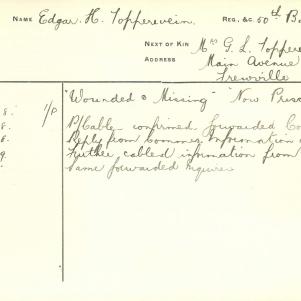 NAME Edgar. H. Topperwein. REG. &C. 50th B
NEXT OF KIN Mrs G. L. Toppere
ADDRESS Main Avenue
Frewville
8. 1/P "Wounded & Missing" Now Priso
8. P/Cable confirmed forwarded Co
6. Reply from Commrs. Information
9. Further cabled information from
Same forwarded inquirer